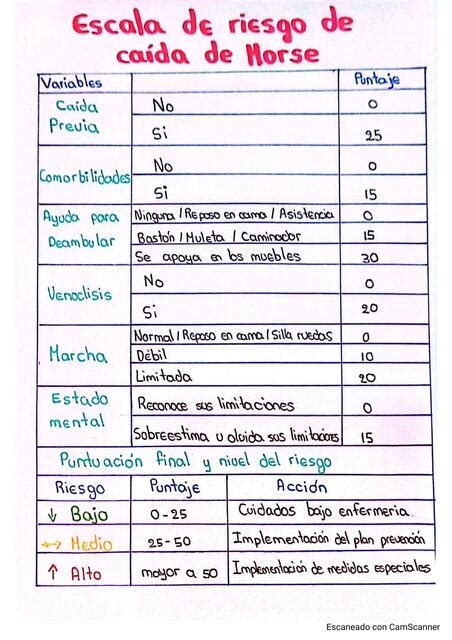 Escala de riesgo de
caída de Morse
Variables Puntaje
Caída Previa No 0
Si 25
Comorbilidades No 0
Si 15
Ayuda para Deambular Ninguna / Reposo en cama / Asistencia 0
Bastón / Muleta / Caminador 15
Se apoya en los muebles 30
Venoclisis No 0
Si 20
Marcha Normal / Reposo en cama / Silla ruedas 0
Débil 10
Limitada 20
Estado mental Reconoce sus limitaciones 0
Sobreestima u olvida sus limitaciones 15
Puntuación final y nivel del riesgo
Riesgo Puntaje Acción
↓ Bajo 0-25 Cuidados bajo enfermeria.
↔ Medio 25-50 Implementación del plan prevención
↑ Alto mayor a 50 Implementación de medidas especiales
Escaneado con CamScanner